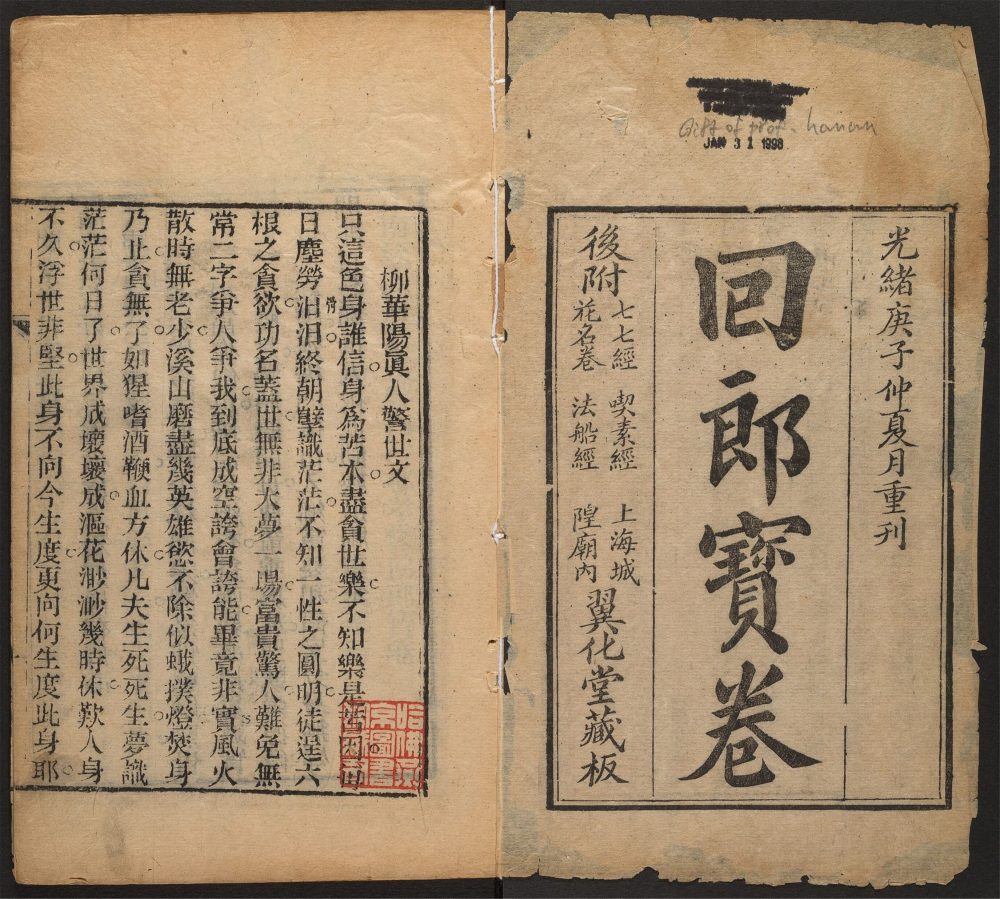 Gift of prof. hanan
JAN 31 1998
光緒庚子仲夏月重刊
回郎寳卷
後附
七七經 喫素經 上海城
花名卷 法船經 隍廟內
翼化堂藏板
柳華陽眞人警世文
只這色身誰信身爲苦本盡貪世樂不知樂是苦因每
日塵勞汩汩終朝孽識茫茫不知一性之圓明徒逞六
骨
根之貪欲功名蓋世無非大夢一場富貴驚人難免無
常二字爭人爭我到底成空誇會誇能畢竟非實風火
散時無老少溪山磨盡幾英雄慾不除似蛾撲燈焚身
乃止貪無了如猩嗜酒鞭血方休凡夫生死死生夢識
茫茫何日了世界成壞壞成漚花渺渺幾時休歎人身
不久浮世非堅此身不向今生度更向何生度此身耶
哈佛燕
京圖書